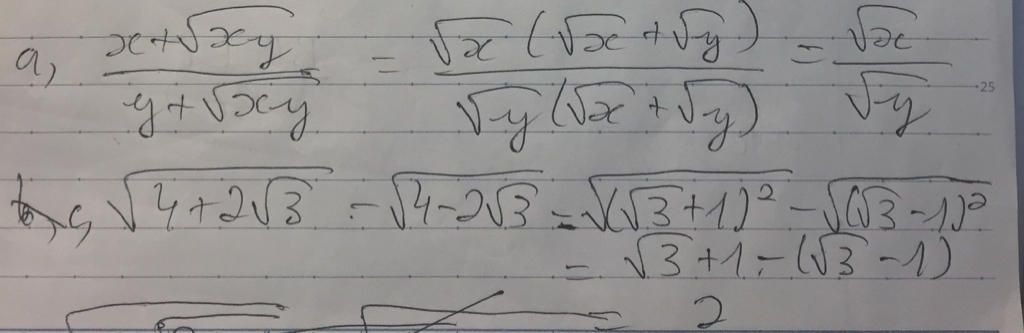 a, x+√xy / y+√xy = √x (√x + √y) / √y (√x + √y) = √x / √y
25
c, √4+2√3 - √4-2√3 = √(√3+1)² - √(√3-1)²
= √3+1 - (√3-1)
= 2